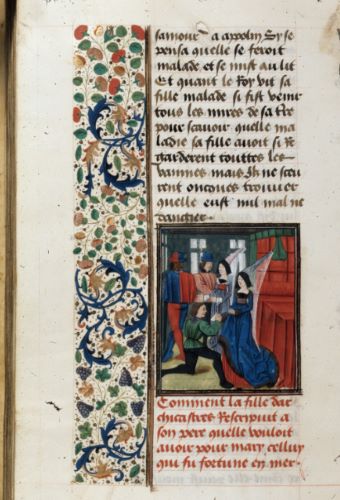 samour a appolin Sy se
pensa quelle se feroit
malade, et se mist au lit
Et quant le Roy vit sa
fille malade si fist venir
tous les mires de sa tre
pour scauoir quelle ma
ladie sa fille auoit si Re
garderent touttes les
vainnes mais Ilz ne sceu
rent oncques trouuer
quelle eust mil mal ne
dangier
Comment la fille dar
chicastres Rescripuit a
son pere quelle vouloit
auoir pour mary celluy
qui su fortune en mer